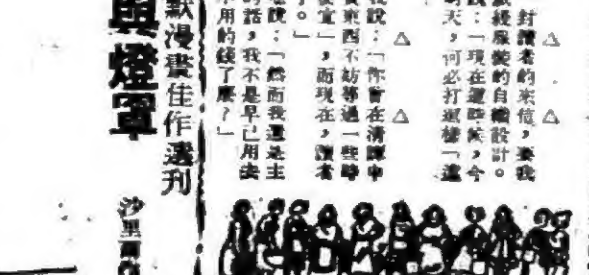 △　△
封讀者的來信，要我
的自繼設計。
：「現在這時候，今
明天，何必打這樣「遠
△　△
我說：「你會在清譚中
東西不妨等過一些時
便宜」，而現在，讀者
。」
說：「然而我還是主
的話，我不是早已用決
不用的錢了麼？」
默漫畫佳作選刊
與燈罩
沙里